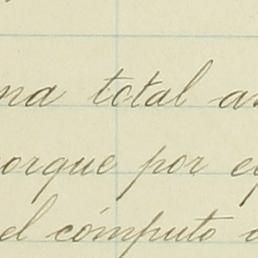 na total a
orque por e
el cómputo